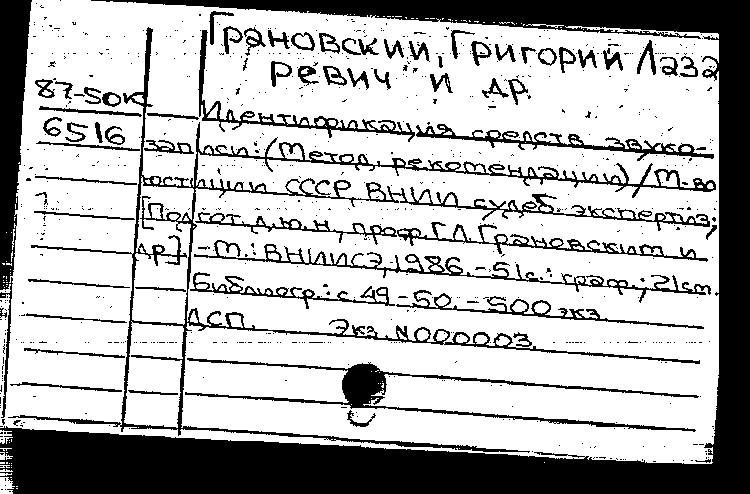 Грановский, Григорий Лаза
ревич и др.
87-50к
Идентификация средств звуко-
6516 записи: (Метод. рекомендации) / М-во
юстиции СССР, ВНИИ судеб. экспертиз;
[Подгот. д.ю.н., проф. Г.Л. Грановским и
др.]. - М.: ВНИИСЭ, 1986. - 51с.: граф.; 21см.
Библиогр.: с. 49-50. - 500 экз.
ДСП. Экз. N000003.